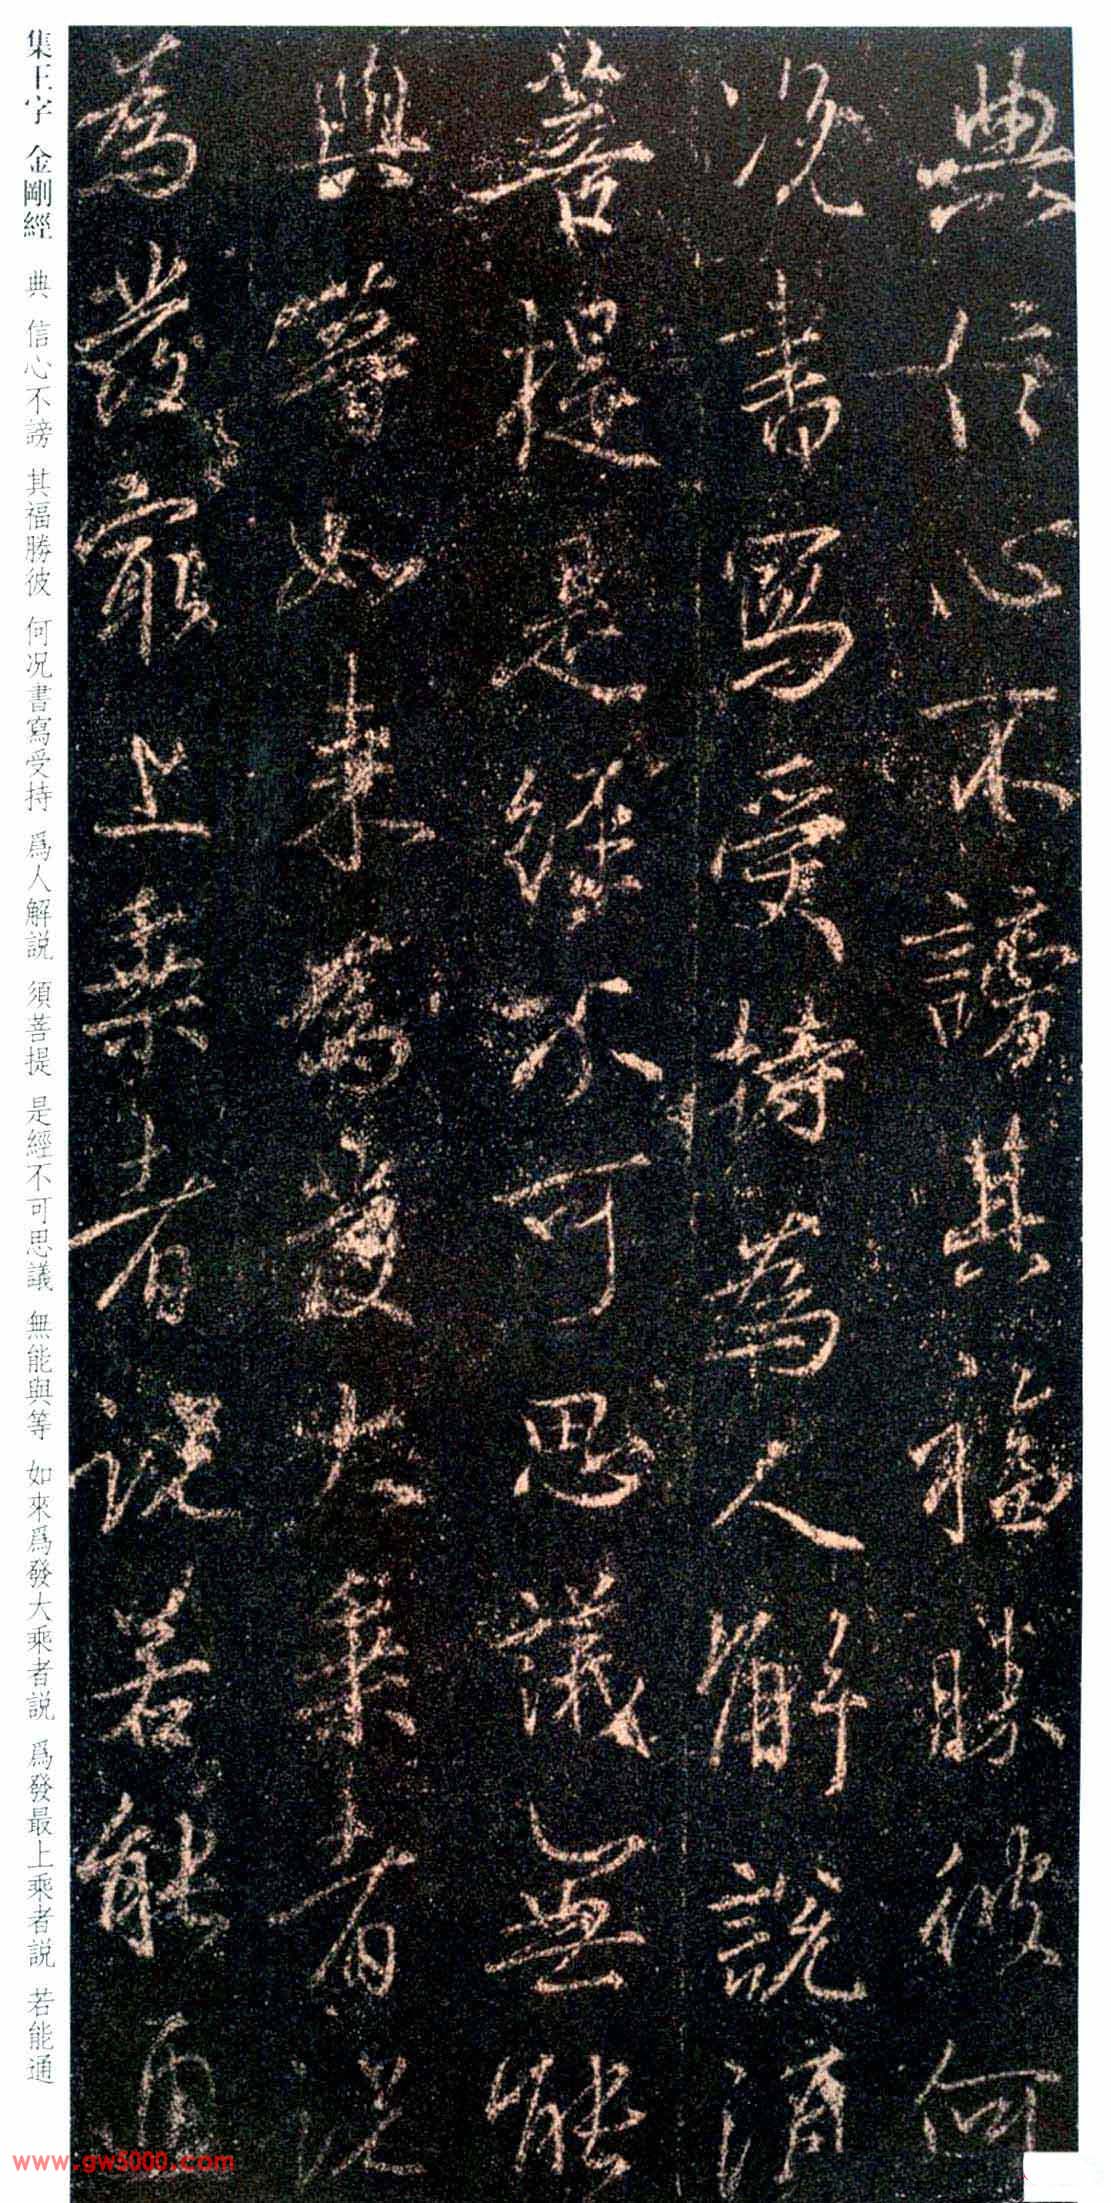 典信心不謗其福勝彼何
况書寫受持為人解說須
菩提是經不可思議無能
與等如來為發大乘者說
為發最上乘者說若能通
集王字 金剛經 典 信心不謗 其福勝彼 何况書寫受持 爲人解説 須菩提 是經不可思議 無能與等 如來爲發大乘者説 爲發最上乘者説 若能通
www.gw5000.com